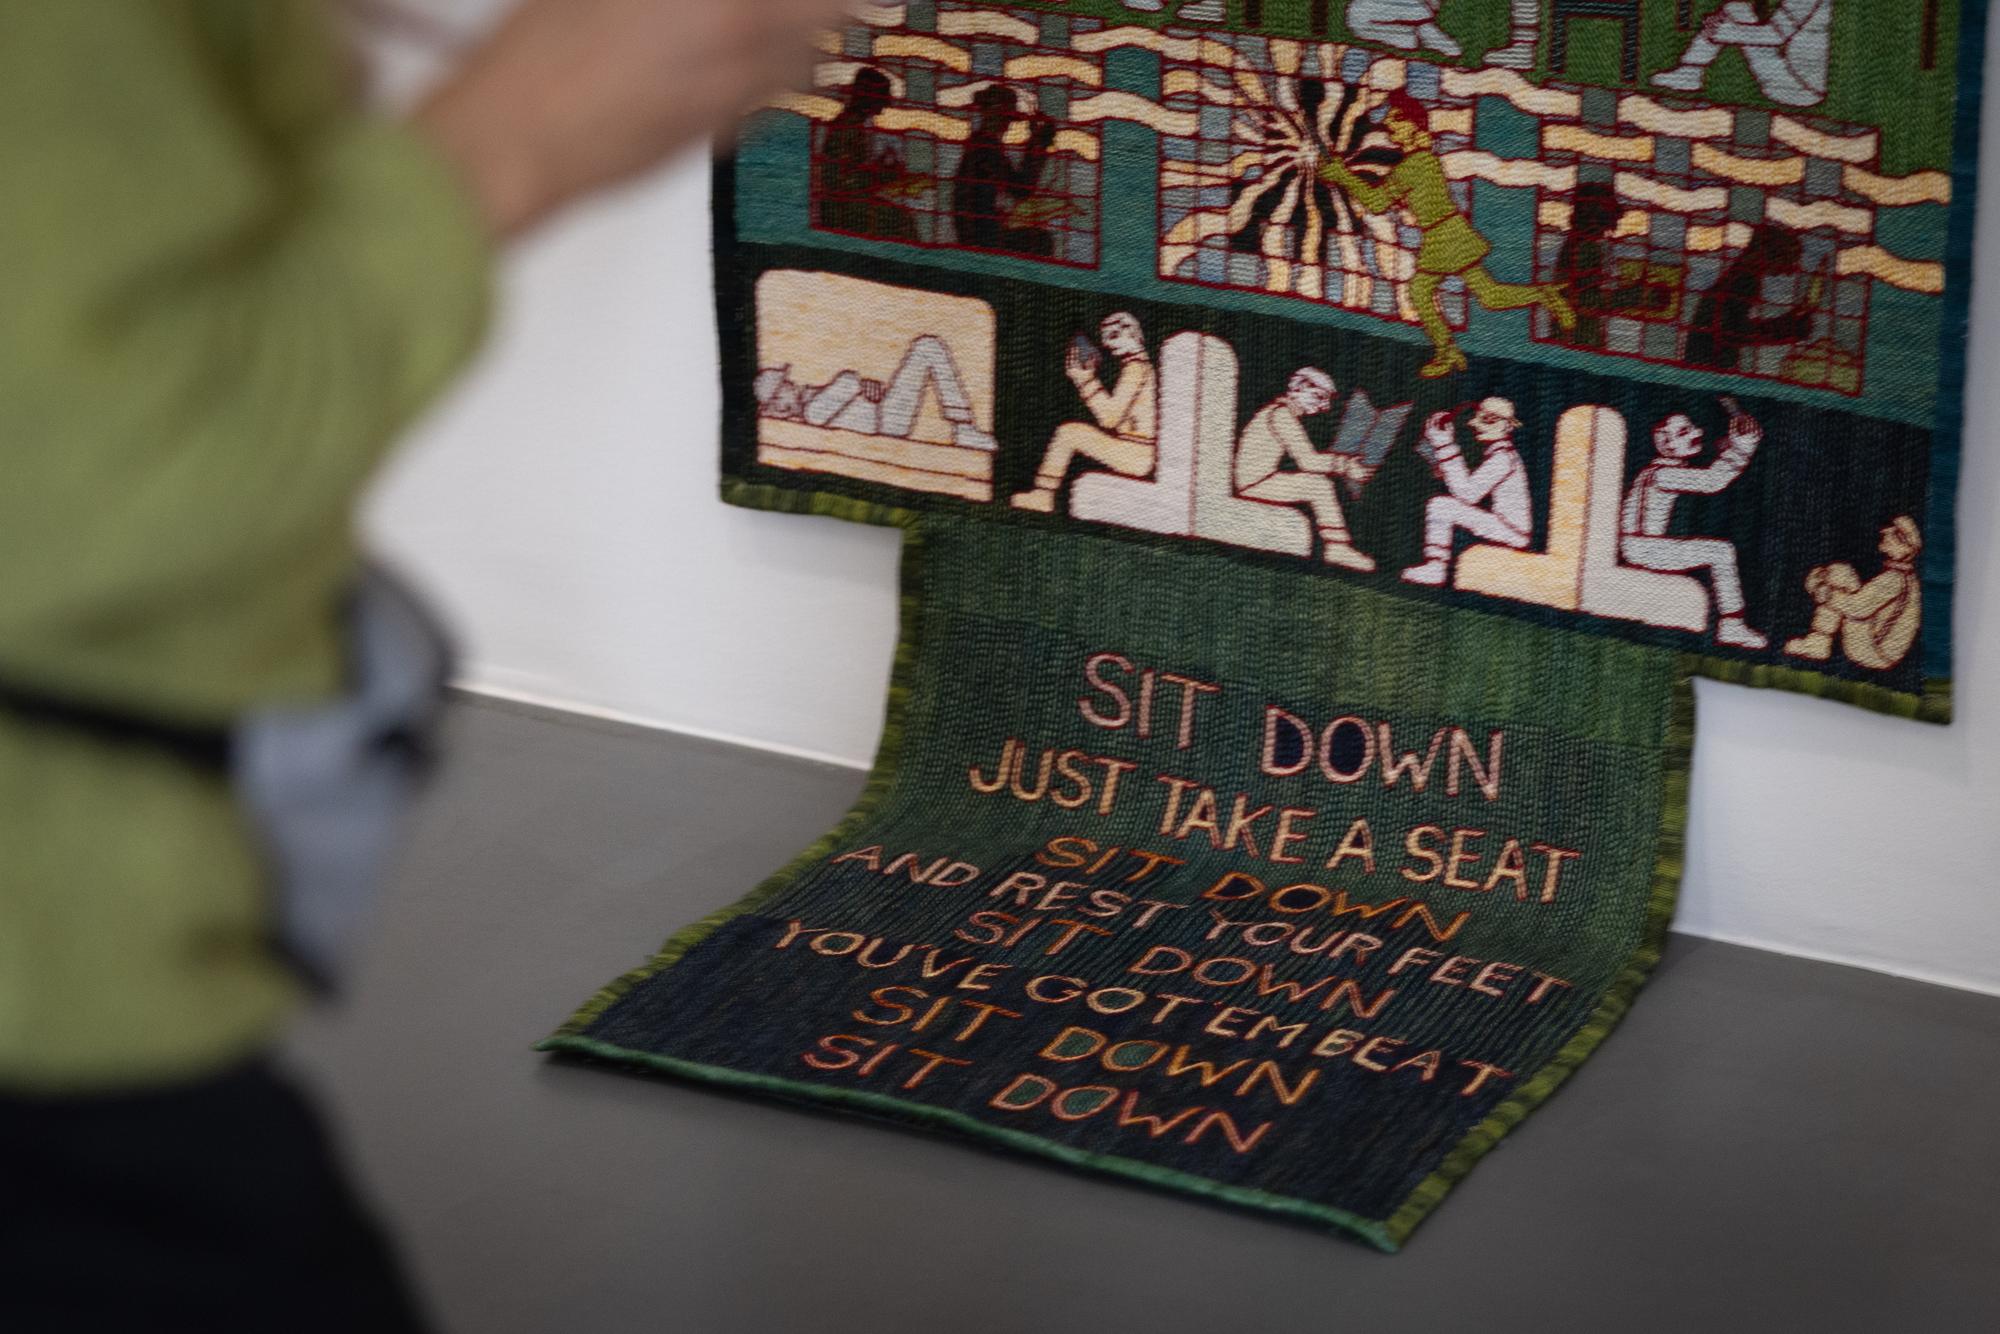 SIT DOWN
JUST TAKE A SEAT
SIT DOWN
AND REST YOUR FEET
SIT DOWN
YOU'VE GOT'EM BEAT
SIT DOWN
SIT DOWN